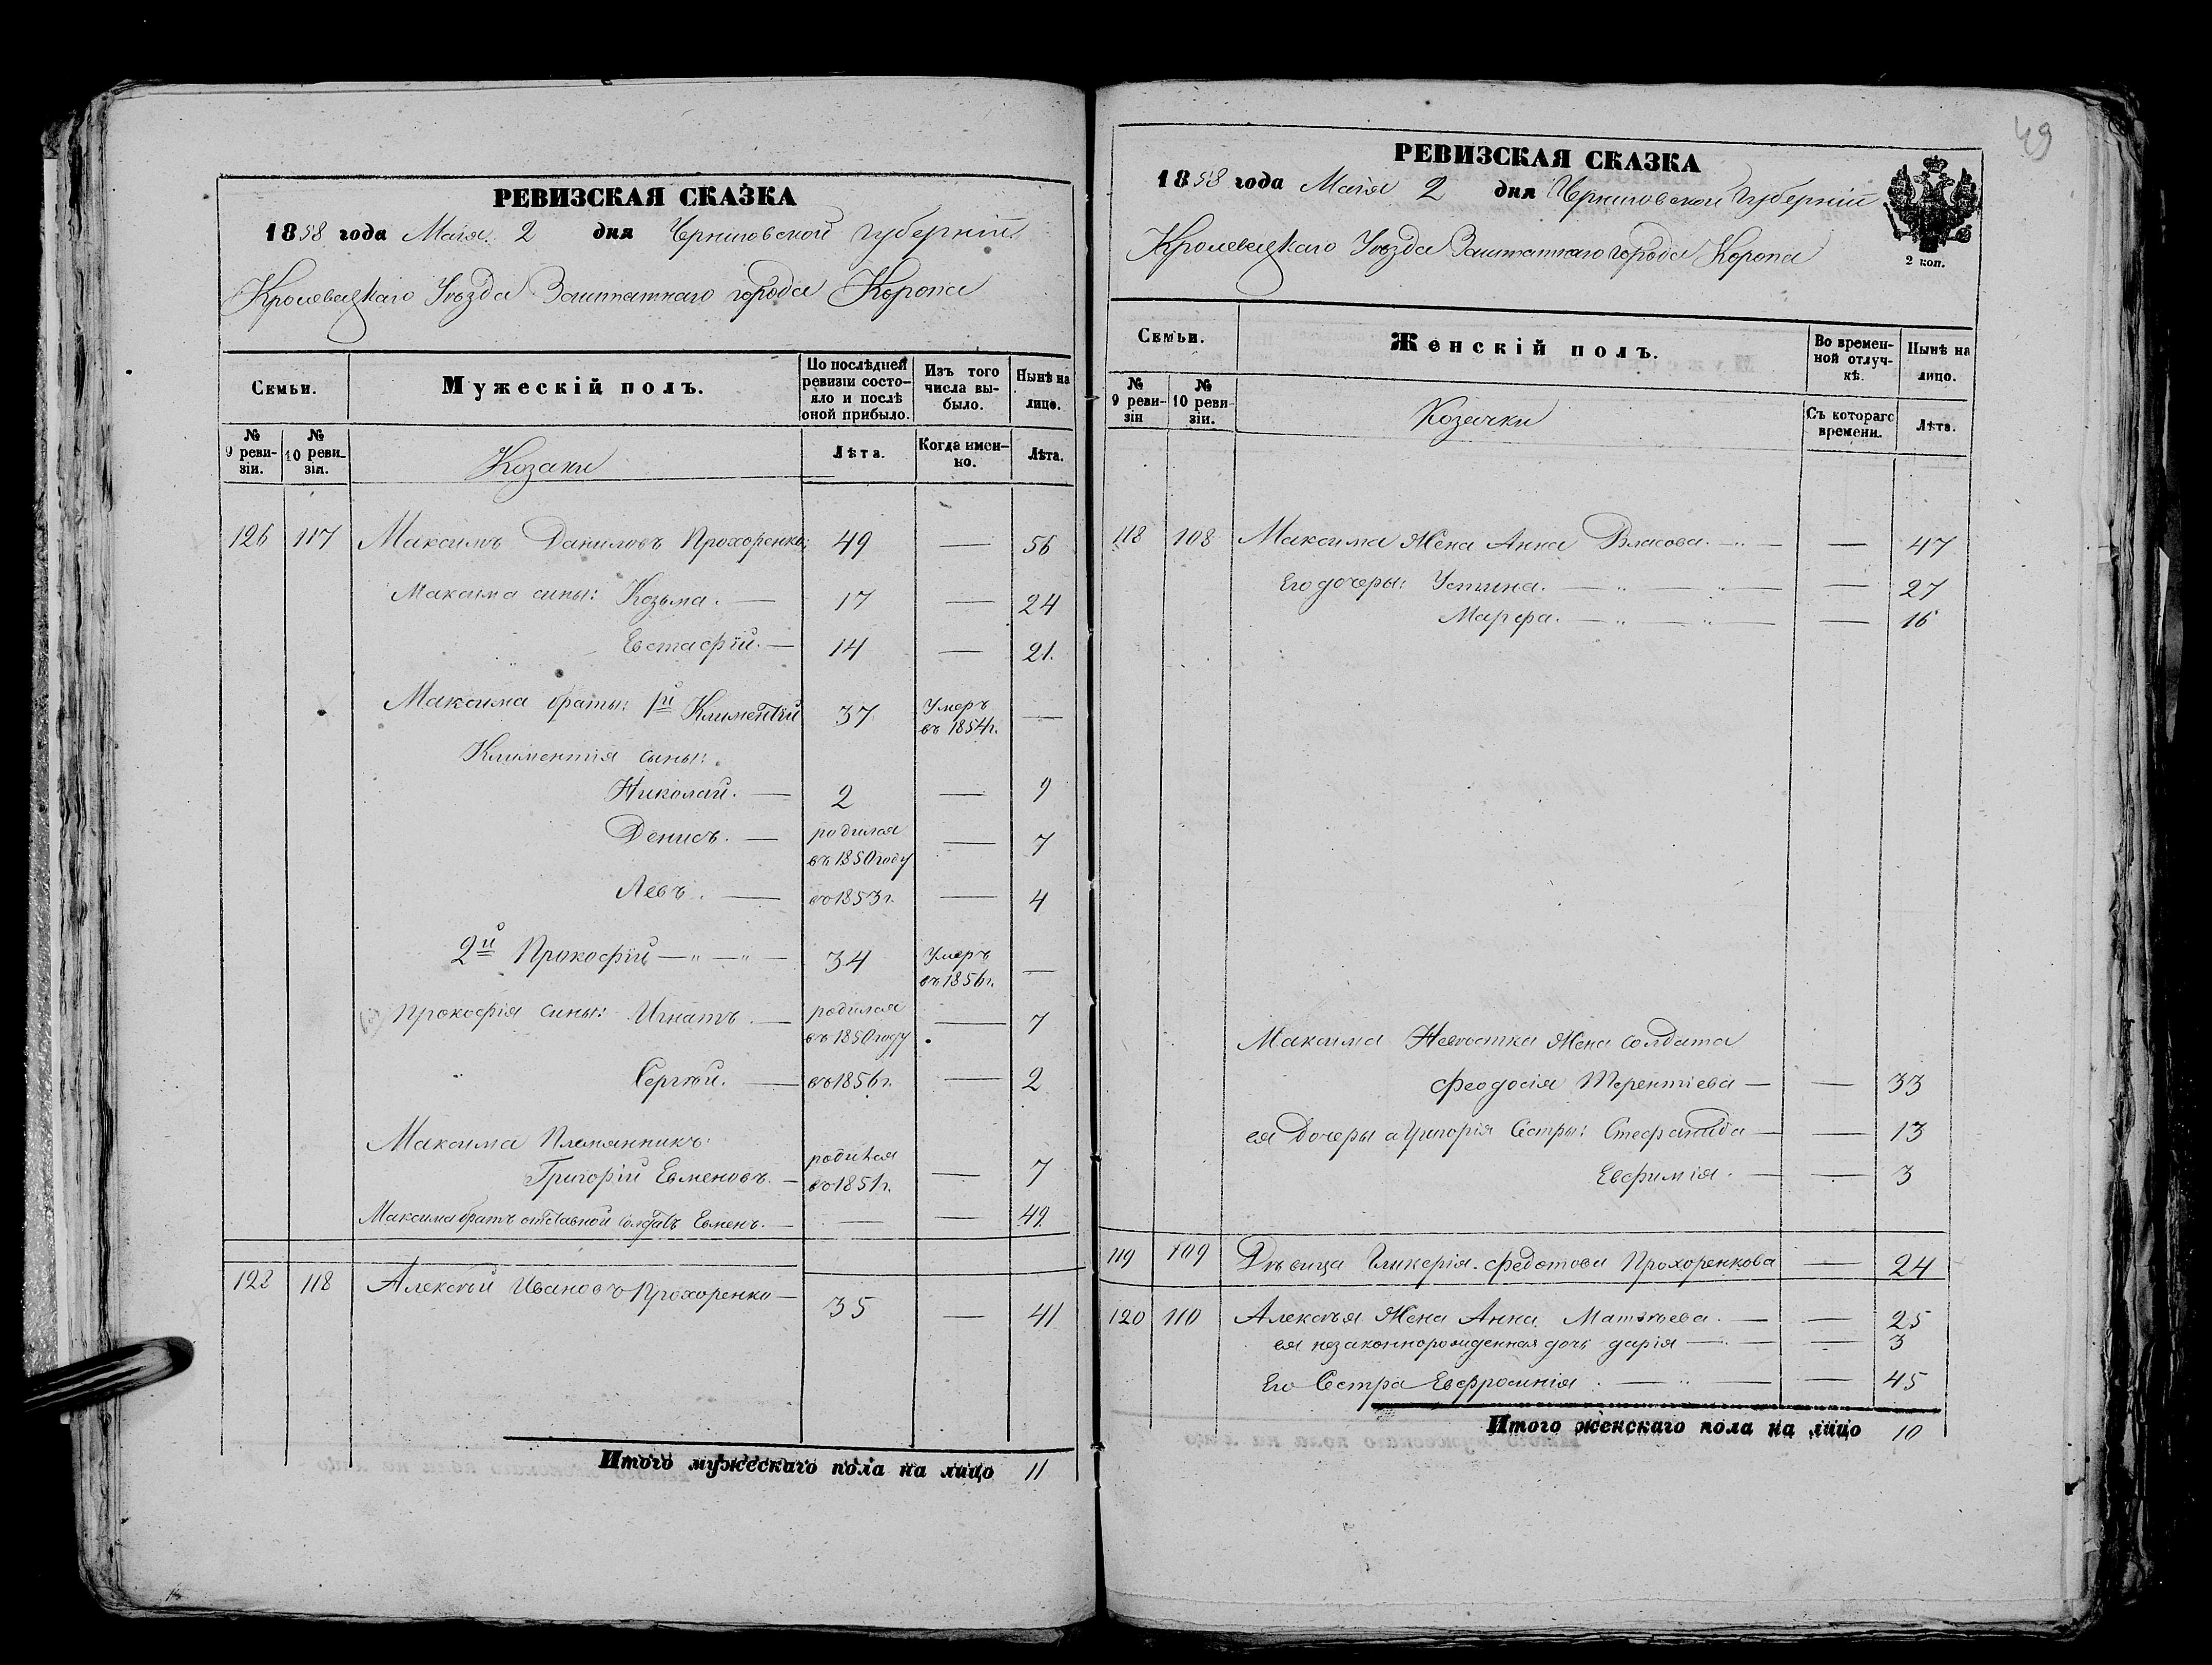 РЕВИЗСКАЯ СКАЗКА
1858 года Маія 2 дня Черниговской Губерніи
Кролевецкаго Уѣзда Заштатнаго города Коропа
Семьи.
Мужескій полъ.
По послѣдней ревизіи состояло и послѣ оной прибыло.
Изъ того числа выбыло.
Нынѣ на лицо.
№ 9 ревизіи.
№ 10 ревизіи.
Козаки
Лѣта.
Когда именно.
Лѣта.
126 117 Максимъ Даниловъ Прохоренко; 49 — 56
Максима сины: Козьма. — 17 — 24
Евстафій. — 14 — 21.
Максима браты: 1й Климентій 37 Умеръ въ 1854г. —
Климентія сыны:
Николай. — 2 — 9
Денисъ. — родился въ 1850 году — 7
Левъ. — въ 1853г. — 4
2й Прокофій — „ — „ — 34 Умеръ въ 1856г. —
Прокофія сины: Игнатъ. — родился въ 1850 году — 7
Сергѣй. — въ 1856г. — 2
Максима Племянникъ:
Григорій Евменовъ. — родился въ 1851г. — 7
Максима братъ отставной солдатъ Евменъ. — — — 49
122 118 Алексѣй Ивановъ Прохоренко — 35 — 41
Итого мужескаго пола на лицо 11
49
РЕВИЗСКАЯ СКАЗКА
1858 года Маія 2 дня Черниговской Губерніи
2 коп.
Кролевецкаго Уѣзда Заштатнаго города Коропа
Семьи.
Женскій полъ.
Во временной отлучкѣ.
Нынѣ на лицо.
№ 9 ревизіи
№ 10 ревизіи.
Козачки
Съ котораго времени.
Лѣта.
118 108 Максима Жена Анна Власова. — „ — — 47
Его дочеры: Устина. — „ — „ — — 27
Марфа. — „ — „ — — 16
Максима Невѣстка Жена солдата
Феодосія Терентіева — — 33
ея Дочеры а Григорія Сестры: Стефанида — — 13
Евфимія. — — 3
119 109 Дѣвица Гликерія Федотова Прохоренкова — 24
120 110 Алексѣя Жена Анна Матвѣева. — — 25
ея незаконнорожденная дочь дарія — — 3
Его Сестра Евфросинія. — „ — — 45
Итого женскаго пола на лицо 10